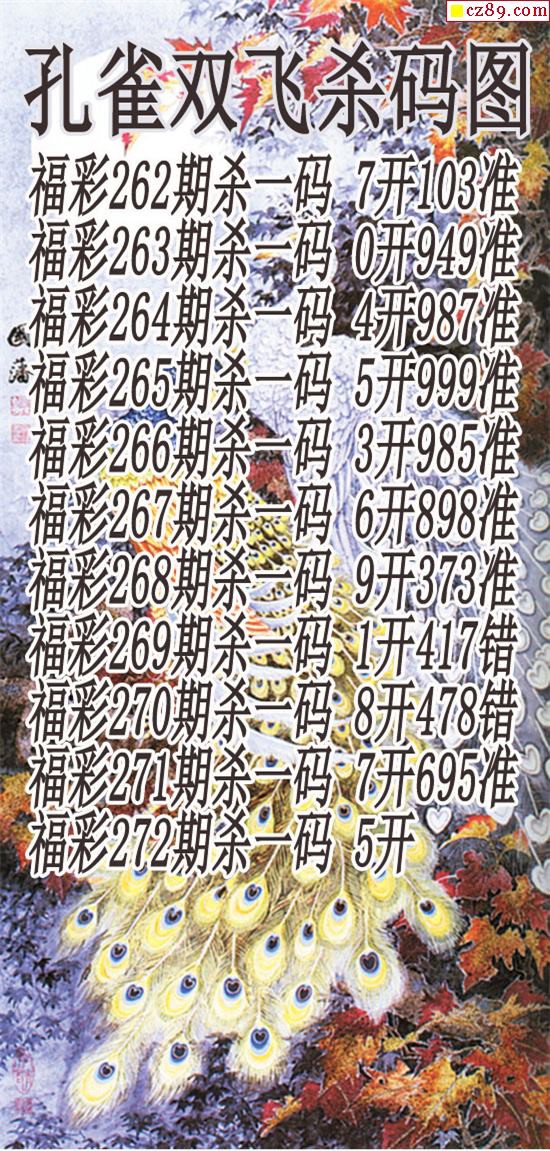 cz89.com
孔雀双飞杀码图
福彩262期杀一码 7开103准
福彩263期杀一码 0开949准
福彩264期杀一码 4开987准
福彩265期杀一码 5开999准
福彩266期杀一码 3开985准
福彩267期杀一码 6开898准
福彩268期杀一码 9开373准
福彩269期杀一码 1开417错
福彩270期杀一码 8开478错
福彩271期杀一码 7开695准
福彩272期杀一码 5开